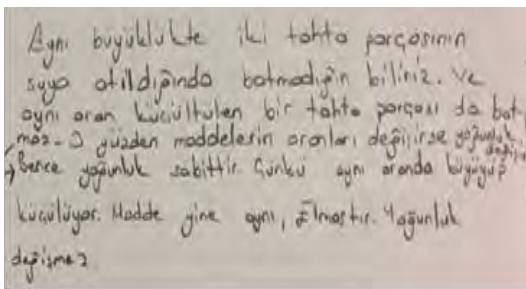 Aynı büyüklükte iki tahta parçasının
suya atıldığında batmadığın biliriz. Ve
aynı oran küçültülen bir tahta parçası da bat
maz. O yüzden maddelerin oranları değişirse yoğunluk
değişir
→ Bence yoğunluk sabittir. Çünkü aynı oranda büyüyüp
küçülüyor. Madde yine aynı, Elmastır. Yoğunluk
değişmez